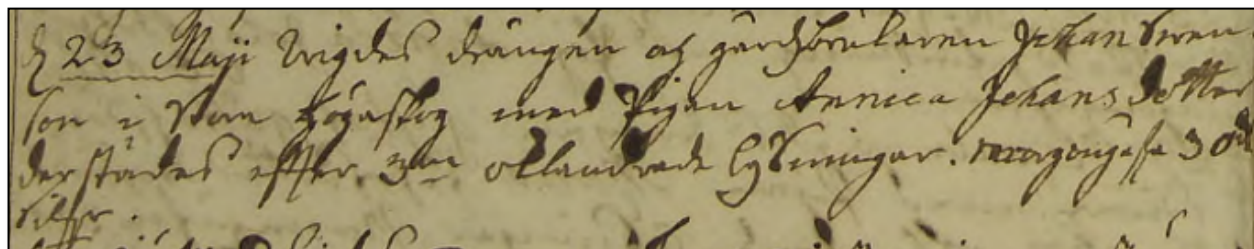 d 23 Maji Wigdes drängen och gårdzbrukaren Johan Swen-
son i Stora Högaskog med Pigan Annica Johans Dotter
derstädes effter 3ne oklandrade lysningar. morgongåfa 30 dl
silfr.